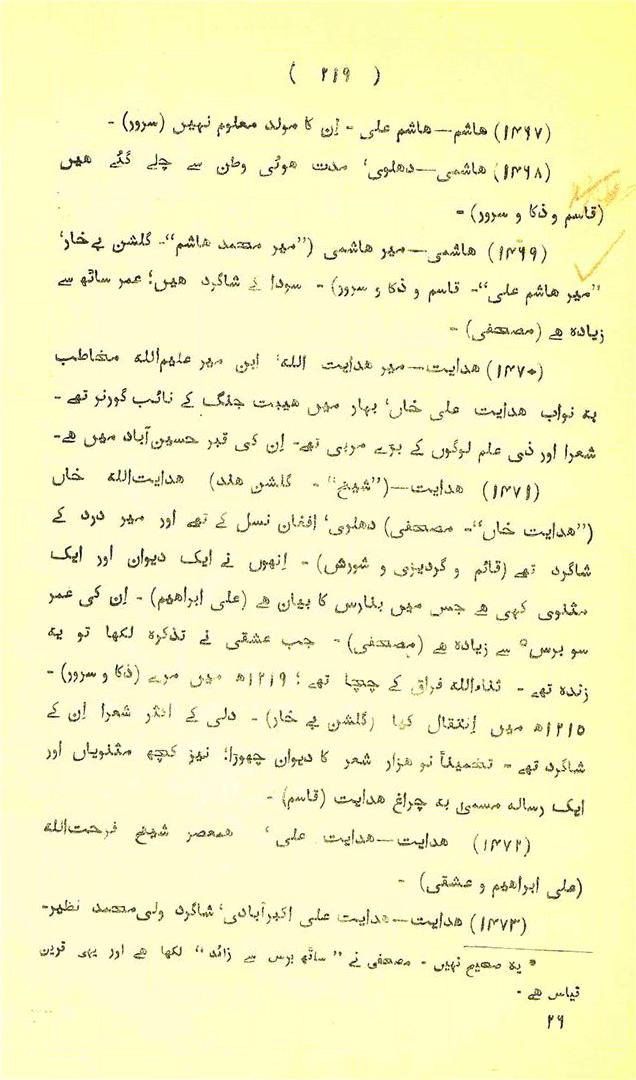 ( ۲۱۹ )
(۱۴۶۷) هاشم—هاشم علی - اِن کا مولد معلوم نہیں (سرور) -
(۱۴۶۸) هاشمی—دهلوی، مدت هوئی وطن سے چلے گئے هیں
(قاسم و ذکا و سرور) -
(۱۴۶۹) هاشمی—میر هاشمی (”میر محمد هاشم“- گلشن بے خار،
”میر هاشم علی“- قاسم و ذکا و سرور) - سودا کے شاگرد هیں؛ عمر ساٹھ سے
زیادہ هے (مصحفی) -
(۱۴۷۰) هدایت—میر هدایت الله، ابن میر علیم‌الله مخاطب
بہ نواب هدایت علی خاں، بہار میں هیبت جنگ کے نائب گورنر تھے -
شعرا اور ذی علم لوگوں کے بڑے مربی تھے- اِن کی قبر حسین‌آباد میں هے-
(۱۴۷۱) هدایت—(”شیخ“ - گلشن هند) هدایت‌الله خاں
(”هدایت خاں“- مصحفی) دهلوی، افغان نسل کے تھے اور میر درد کے
شاگرد تھے (قائم و گردیزی و شورش) - اِنھوں نے ایک دیوان اور ایک
مثنوی کہی هے جس میں بنارس کا بیان هے (علی ابراهیم) - اِن کی عمر
سو برس* سے زیادہ هے (مصحفی) - جب عشقی نے تذکرہ لکھا تو یہ
زندہ تھے - ثناءالله فراق کے چچا تھے؛ ۱۲۱۹ھ میں مرے (ذکا و سرور) -
۱۲۱۵ھ میں اِنتقال کیا (گلشن بے خار) - دلی کے اکثر شعرا اِن کے
شاگرد تھے - تخمیناً نو هزار شعر کا دیوان چھوڑا؛ نیز کچھ مثنویاں اور
ایک رسالہ مسمیٰ بہ چراغ هدایت (قاسم) -
(۱۴۷۲) هدایت—هدایت علی، همعصر شیخ فرحت‌الله
(علی ابراهیم و عشقی) -
(۱۴۷۳) هدایت—هدایت علی اکبرآبادی، شاگرد ولی‌محمد نظیر-
* یہ صحیح نہیں - مصحفی نے ”ساٹھ برس سے زائد“ لکھا هے اور یہی قرین
قیاس هے -
۲۶